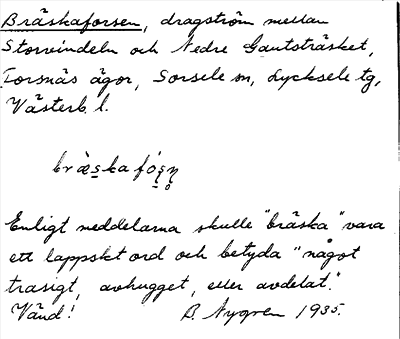 Bräskaforsen, dragström mellan
Storvindeln och Nedre Gautsträsket,
Forsnäs ägor, Sorsele sn, Lycksele tg,
Västerb. l.
bræ̀skafó̱ṣṇ̥
Enligt meddelarna skulle "bräska" vara
ett lappskt ord och betyda "något
trasigt, avhugget, eller avdelat."
Vänd! B. Nygren 1935.